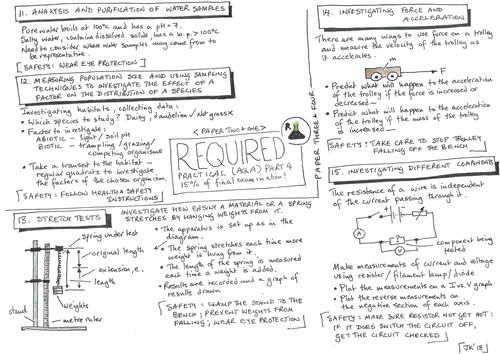 11. ANALYSIS AND PURIFICATION OF WATER SAMPLES
Pure water boils at 100°C and has a pH = 7.
Salty water, contains dissolved solids, has a b.p. > 100°C
Need to consider where water samples may come from to
be representative.
SAFETY: WEAR EYE PROTECTION
12. MEASURING POPULATION SIZE AND USING SAMPLING
TECHNIQUES TO INVESTIGATE THE EFFECT OF A
FACTOR ON THE DISTRIBUTION OF A SPECIES
Investigating habitats, collecting data:
• Which species to study? Daisy / dandelion / Not grass x
• Factor to investigate:
ABIOTIC - light / soil pH
BIOTIC - trampling / grazing /
competing organisms
• Take a transect to the habitat -
regular quadrats to investigate
the factors of the chosen organism.
SAFETY: FOLLOW HEALTH & SAFETY
INSTRUCTIONS
< PAPER TWO & ONE >
REQUIRED
PRACTICAL (AQA) PART 4
15% of final examination!
R
PAPER THREE & FOUR
13. STRETCH TESTS
INVESTIGATE HOW EASILY A MATERIAL OR A SPRING
STRETCHES BY HANGING WEIGHTS FROM IT.
spring under test
original length
extension, e.
length
weights
metre ruler
stand
• The apparatus is set up as in the
diagram.
• The spring stretches each time more
weight is hung from it.
• The length of the spring is measured
each time a weight is added.
• Results are recorded and a graph of
results drawn.
SAFETY: CLAMP THE STAND TO THE
BENCH; PREVENT WEIGHTS FROM
FALLING; WEAR EYE PROTECTION
14. INVESTIGATING FORCE AND
ACCELERATION
There are many ways to use force on a trolley
and measure the velocity of the trolley as
it accelerates.
m
F
• Predict what will happen to the acceleration
of the trolley if the force is increased or
decreased -
• Predict what will happen to the acceleration
of the trolley if the mass of the trolley
is increased -
SAFETY: TAKE CARE TO STOP TROLLEY
FALLING OFF THE BENCH
15. INVESTIGATING DIFFERENT COMPONENTS
The resistance of a wire is independent
of the current passing through it.
A
?
V
component being
tested
Make measurements of current and voltage
using resistor / filament lamp / diode
• Plot the measurements on a I vs. V graph
• Plot the reverse measurements on
the negative section of each axis.
SAFETY: MAKE SURE RESISTOR NOT GET HOT:
IF IT DOES SWITCH THE CIRCUIT OFF,
GET THE CIRCUIT CHECKED
JK '18